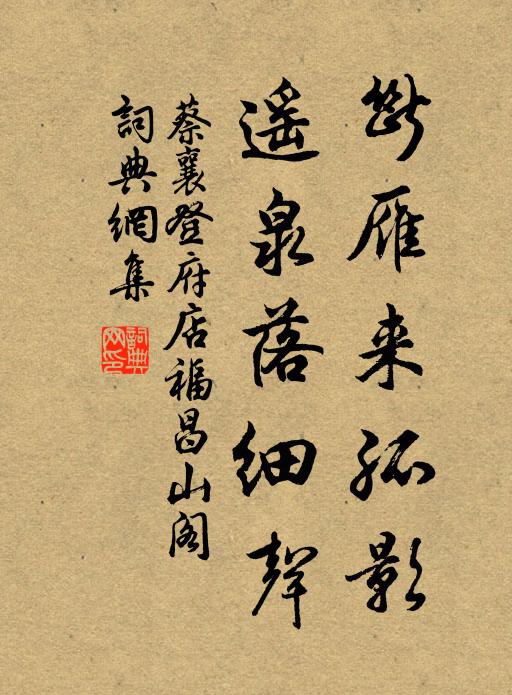 斷雁来孤影
遥泉落细聲
蔡襄登府店福昌山阁
詞典網集
詞典网印